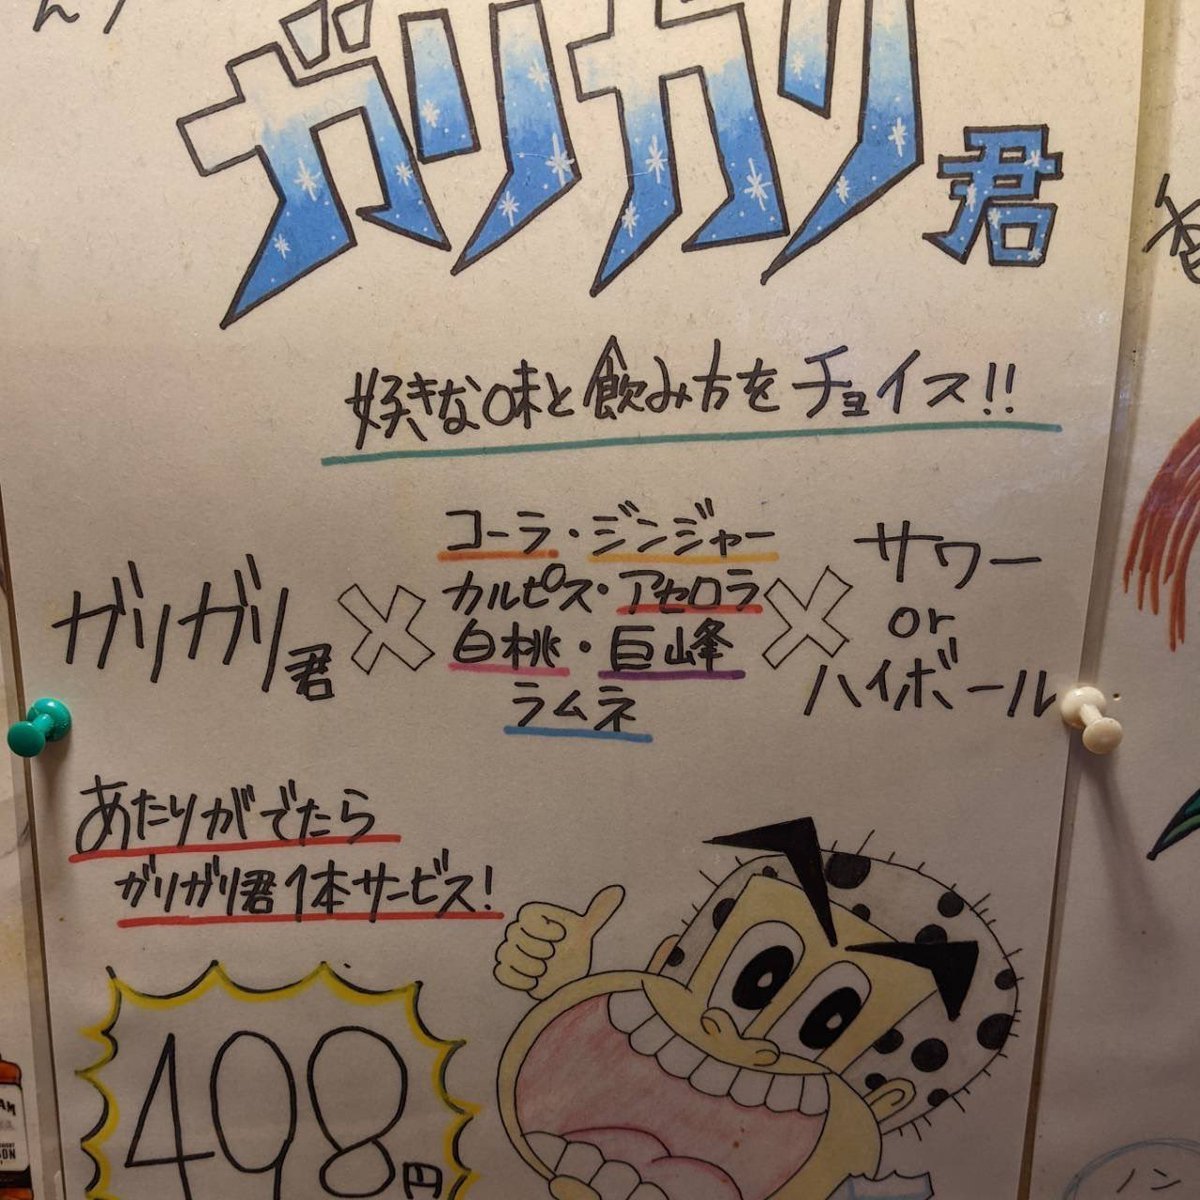 ガリガリ君
好きな味と飲み方をチョイス!!
ガリガリ君 × コーラ・ジンジャー
カルピス・アセロラ
白桃・巨峰
ラムネ
× サワー
or
ハイボール
あたりがでたら
ガリガリ君1本サービス!
498円